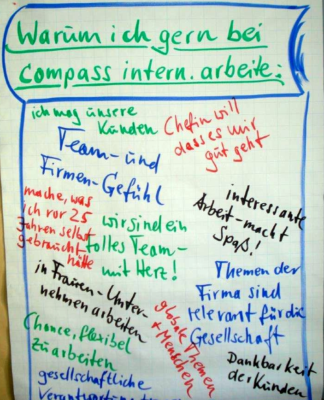 Warum ich gern bei
Compass intern. arbeite:
ich mag unsere
Kunden
Chefin will
dass es mir
gut geht
Team- und
Firmen-Gefühl
mache, was
ich vor 25
Jahren selbst
gebraucht
hätte
wir sind ein
tolles Team-
mit Herz!
interessante
Arbeit-macht
Spaß!
in Frauen-Unter-
nehmen arbeiten
Themen der
Firma sind
relevant für die
Gesellschaft
globale Themen
+ Menschen
Chance, flexibel
zu arbeiten
Dankbarkeit
der Kunden
gesellschaftliche
Verantwortung